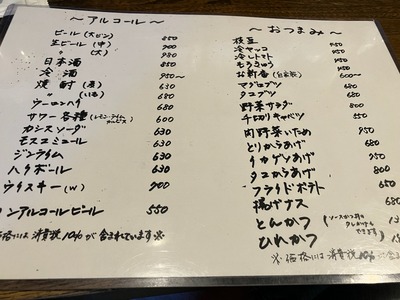 ～アルコール～
ビール(大ビン) 850
生ビール(中) 700
〃 (大) 980
日本酒 850
冷酒 950～
焼酎(麦) 630
〃 (いも) 680
ウーロンハイ 680
サワー各種 600
カシスソーダ 630
モスコミュール 630
ジンライム 630
ハイボール 630
ウイスキー(W) 900
ノンアルコールビール 550
価格には消費税10%が含まれています※
～おつまみ～
枝豆 450
冷ヤッコ 450
冷しトマト 450
もろきゅう 450
お新香(自家製) 600～
マグロブツ 680
タコブツ 680
野菜サラダ 800
千切りキャベツ
肉野菜いため 950
とりからあげ 680
イカゲソあげ 950
タコからあげ 800
フライドポテト 650
揚げナス 680
とんかつ
ひれかつ
※価格には消費税10%